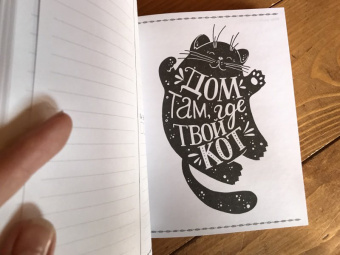 ДОМ
Там, где
ТВОЙ
КОТ